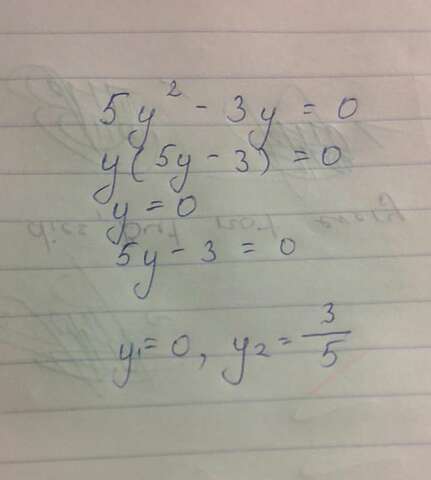 5y² - 3y = 0
y(5y - 3) = 0
y = 0
5y - 3 = 0
y₁ = 0, y₂ = 3/5